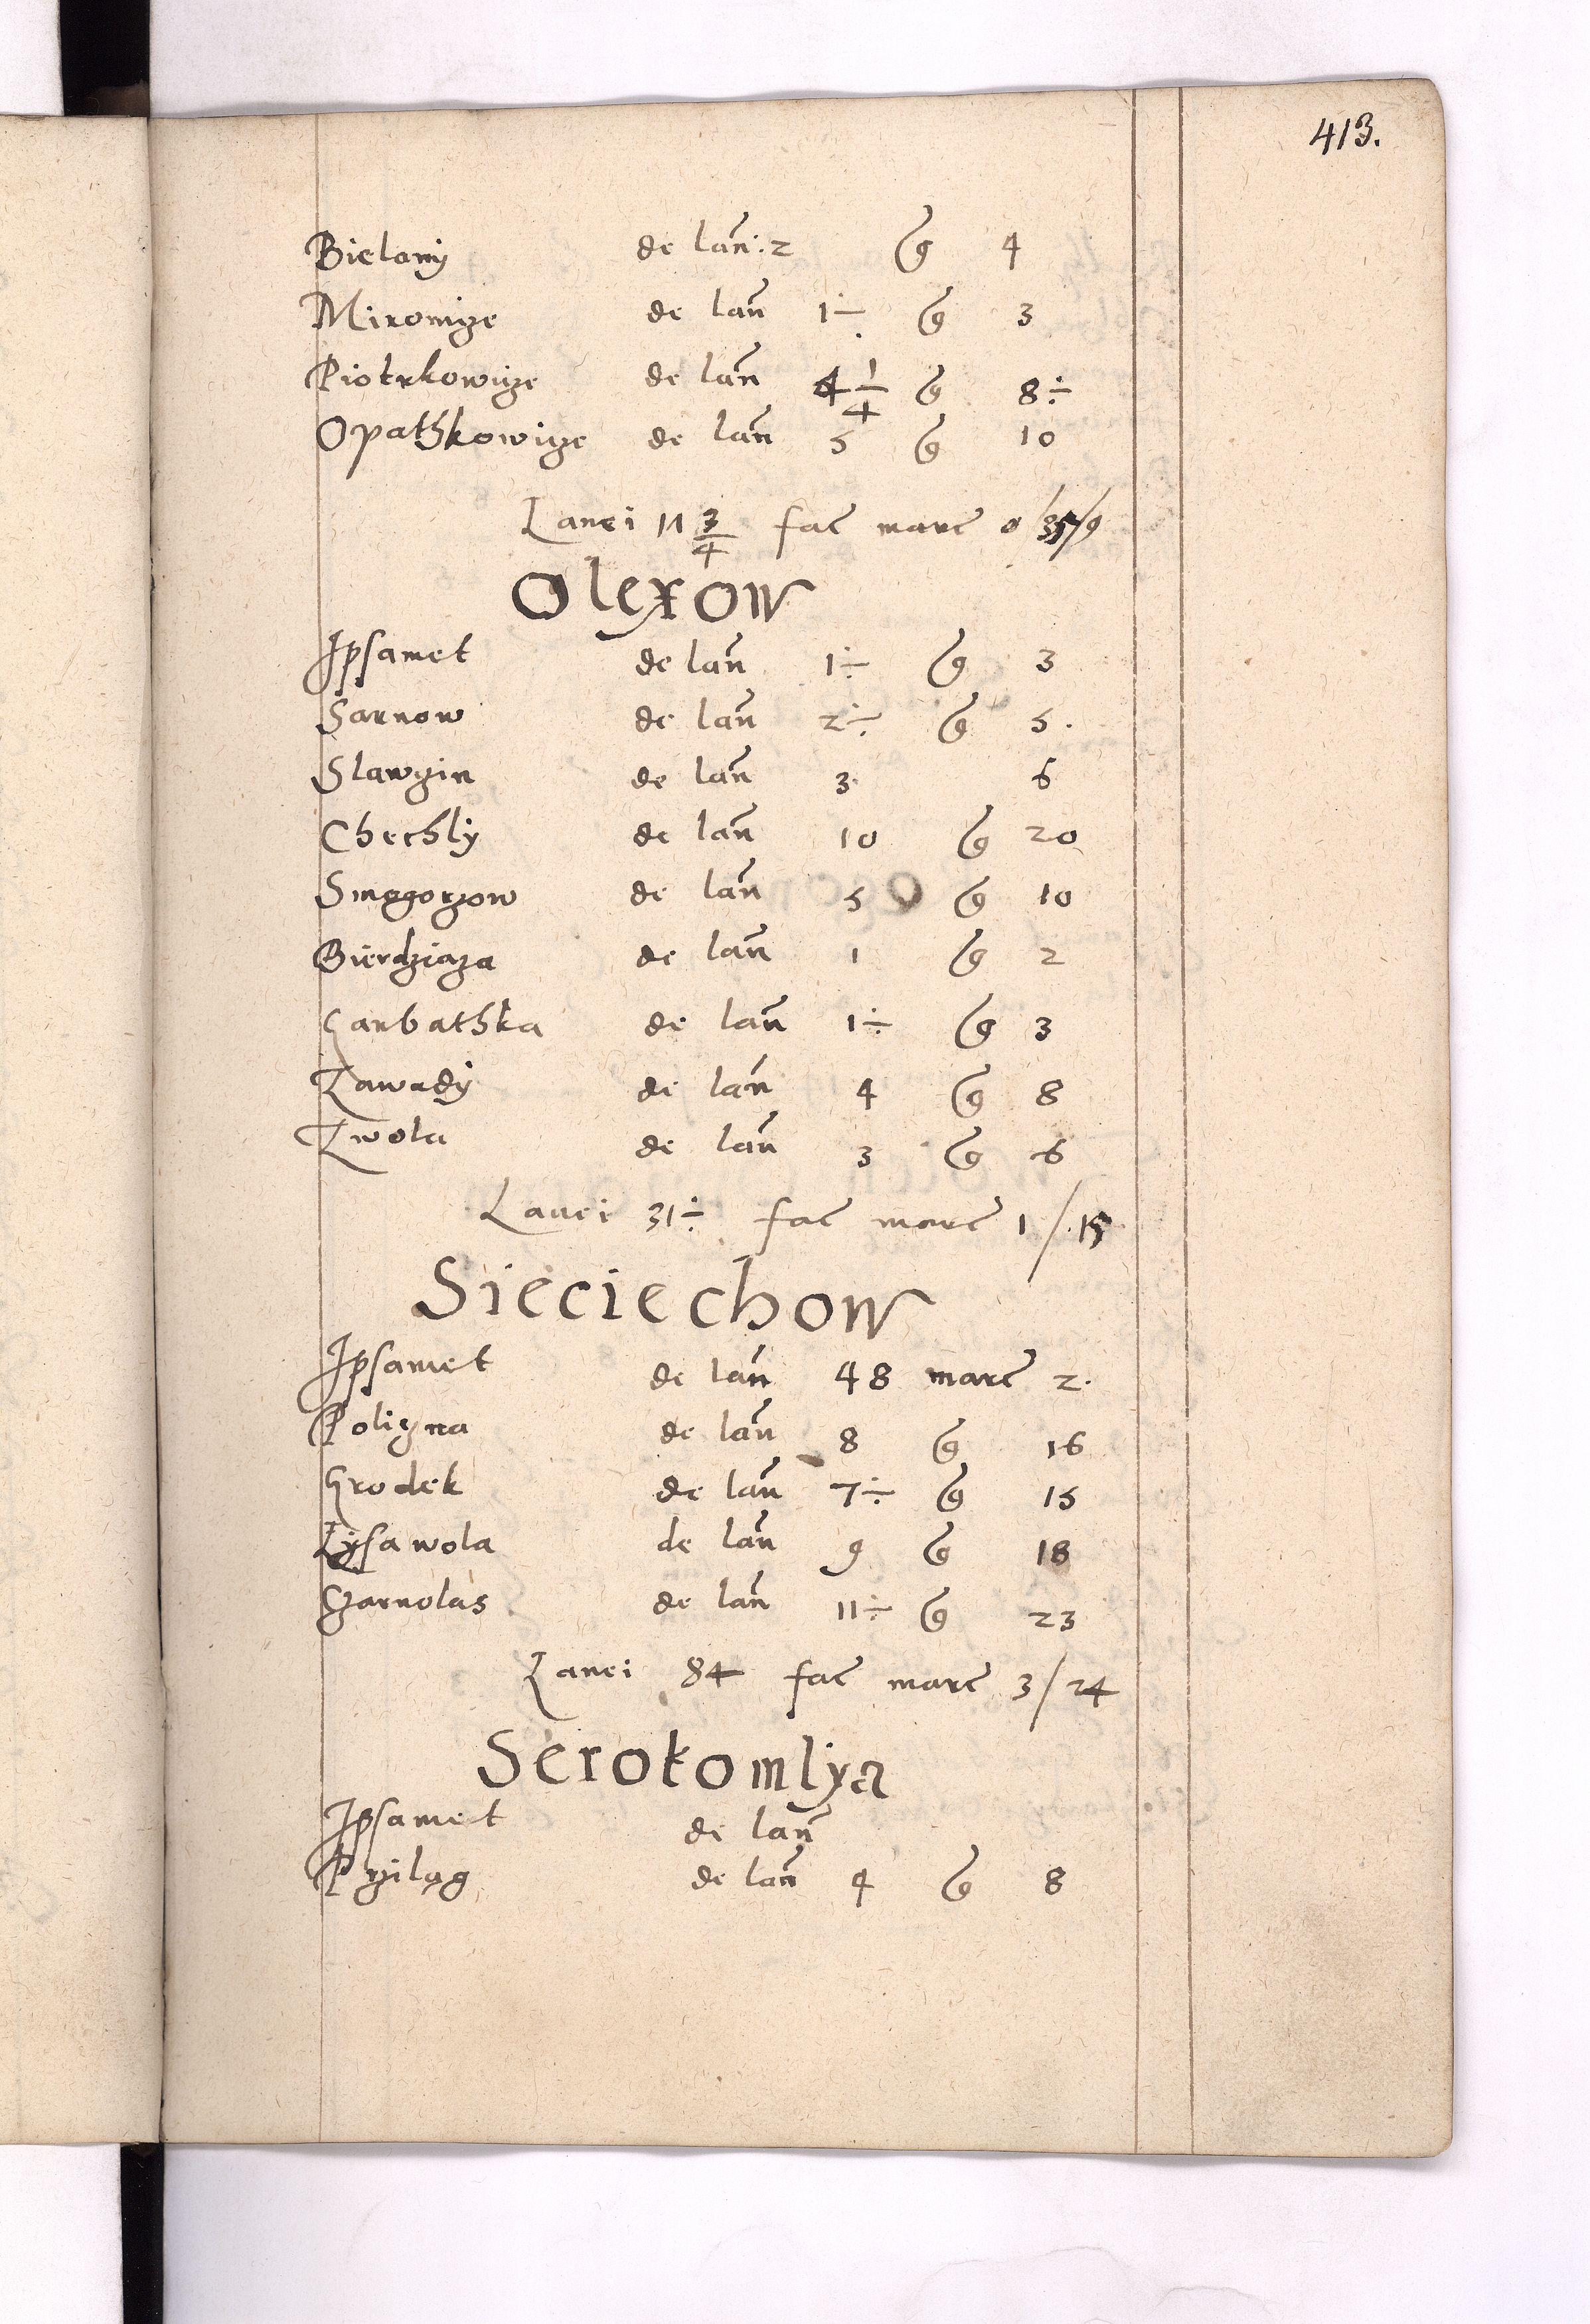 413.
Bielany de lan̄: 2 g 4
Miromyze de lan̄ 1÷ g 3
Piotrkowize de lan̄ 4 1/4 g 8÷
Opathkowize de lan̄ 5 g 10
Lanei 11 3/4 fac marc 0/
Olexow
Ipsamet de lan̄ 1÷ g 3
Sarnow de lan̄ 2÷ g 5.
Slawzin de lan̄ 3 6
Chechly de lan̄ 10 g 20
Smogorzow de lan̄ 5 g 10
Bierdziaza de lan̄ 1 g 2
Garbathka de lan̄ 1÷ g 3
Zawady de lan̄ 4 g 8
Zwola de lan̄ 3 g 6
Lanei 31÷ fac marc 1/15
Sieciechow
Ipsamet de lan̄ 48 marc 2.
Policzna de lan̄ 8 g 16
Grodek de lan̄ 7÷ g 15
Lysa wola de lan̄ 9 g 18
Czarnolas de lan̄ 11÷ g 23
Lanei 84 fac marc 3/24
Serokomlya
Ipsamet de lan̄
Prziląg de lan̄ 4 g 8